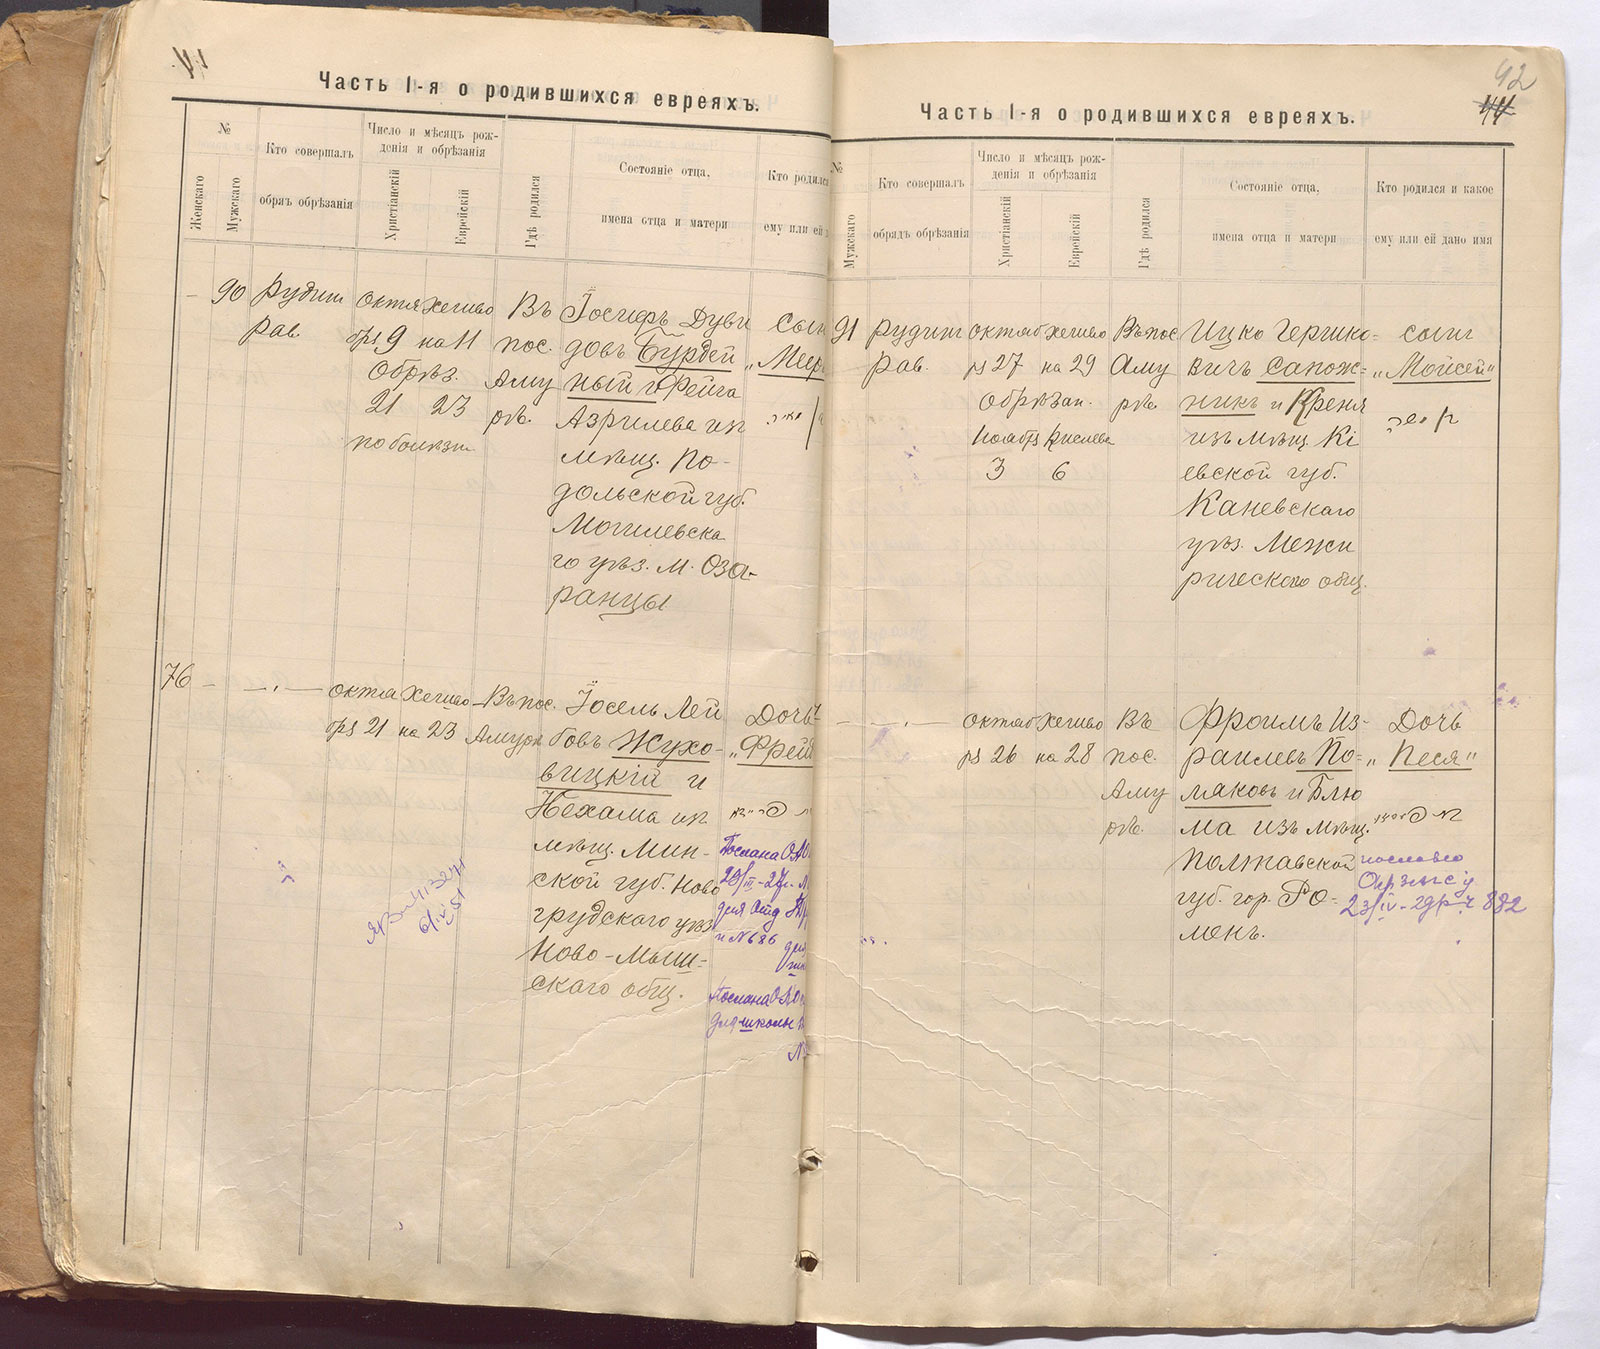 Часть I-я о родившихся евреяхъ.
№
Женскаго
Мужскаго
Кто совершалъ
обрядъ обрѣзанія
Число и мѣсяцъ рож-
денія и обрѣзанія
Христіанскій
Еврейскій
Гдѣ родился
Состояніе отца,
имена отца и матери
Кто родился
ему или ей
90
Рудин
Рав.
октя
бря 9
Обрѣз.
21
по болѣзни
Хешво
на 11
23
Въ
пос.
Аму
рѣ.
Іосифъ Дуви
довъ Бурдей
ный и Фейга
Азрилева из
мѣщ. По-
дольской губ.
Могилевска
го уѣз. м. Оза-
ранцы
сын
„Меер
76
октя
бря 21
Хешво
на 23
Въ пос.
Амурѣ
Іосель Лей
бовъ Жухо-
вицкій и
Нехама из
мѣщ. Мин-
ской губ. Ново
грудскаго уѣз.
Ново-Мыш-
скаго общ.
Дочь
„Фрей
Послана
для
и № 686
Послана
для школы
6/IV 51
Часть I-я о родившихся евреяхъ.
42
44
№
Мужскаго
Кто совершалъ
обрядъ обрѣзанія
Число и мѣсяцъ рож-
денія и обрѣзанія
Христіанскій
Еврейскій
Гдѣ родился
Состояніе отца,
имена отца и матери
Кто родился и какое
ему или ей дано имя
91
Рудин
Рав.
октяб
ря 27
Обрѣзан.
ноабря
3
Хешво
на 29
Кислева
6
Въ пос
Аму
рѣ.
Ицко Гершко-
вичъ Сапож-
никъ и Креня
изъ мѣщ. Кі
евской губ.
Каневскаго
уѣз. Межи
рическаго общ.
сынъ
„Мойсей“
октяб
ря 26
Хешво
на 28
Въ
пос.
Аму
рѣ.
Фроимъ Из-
раилевъ По-
маковъ и Блю
ма изъ мѣщ.
Полтавской
губ. гор. Ро-
менъ.
Дочь
„Песя“
23/IV-29 г. 882